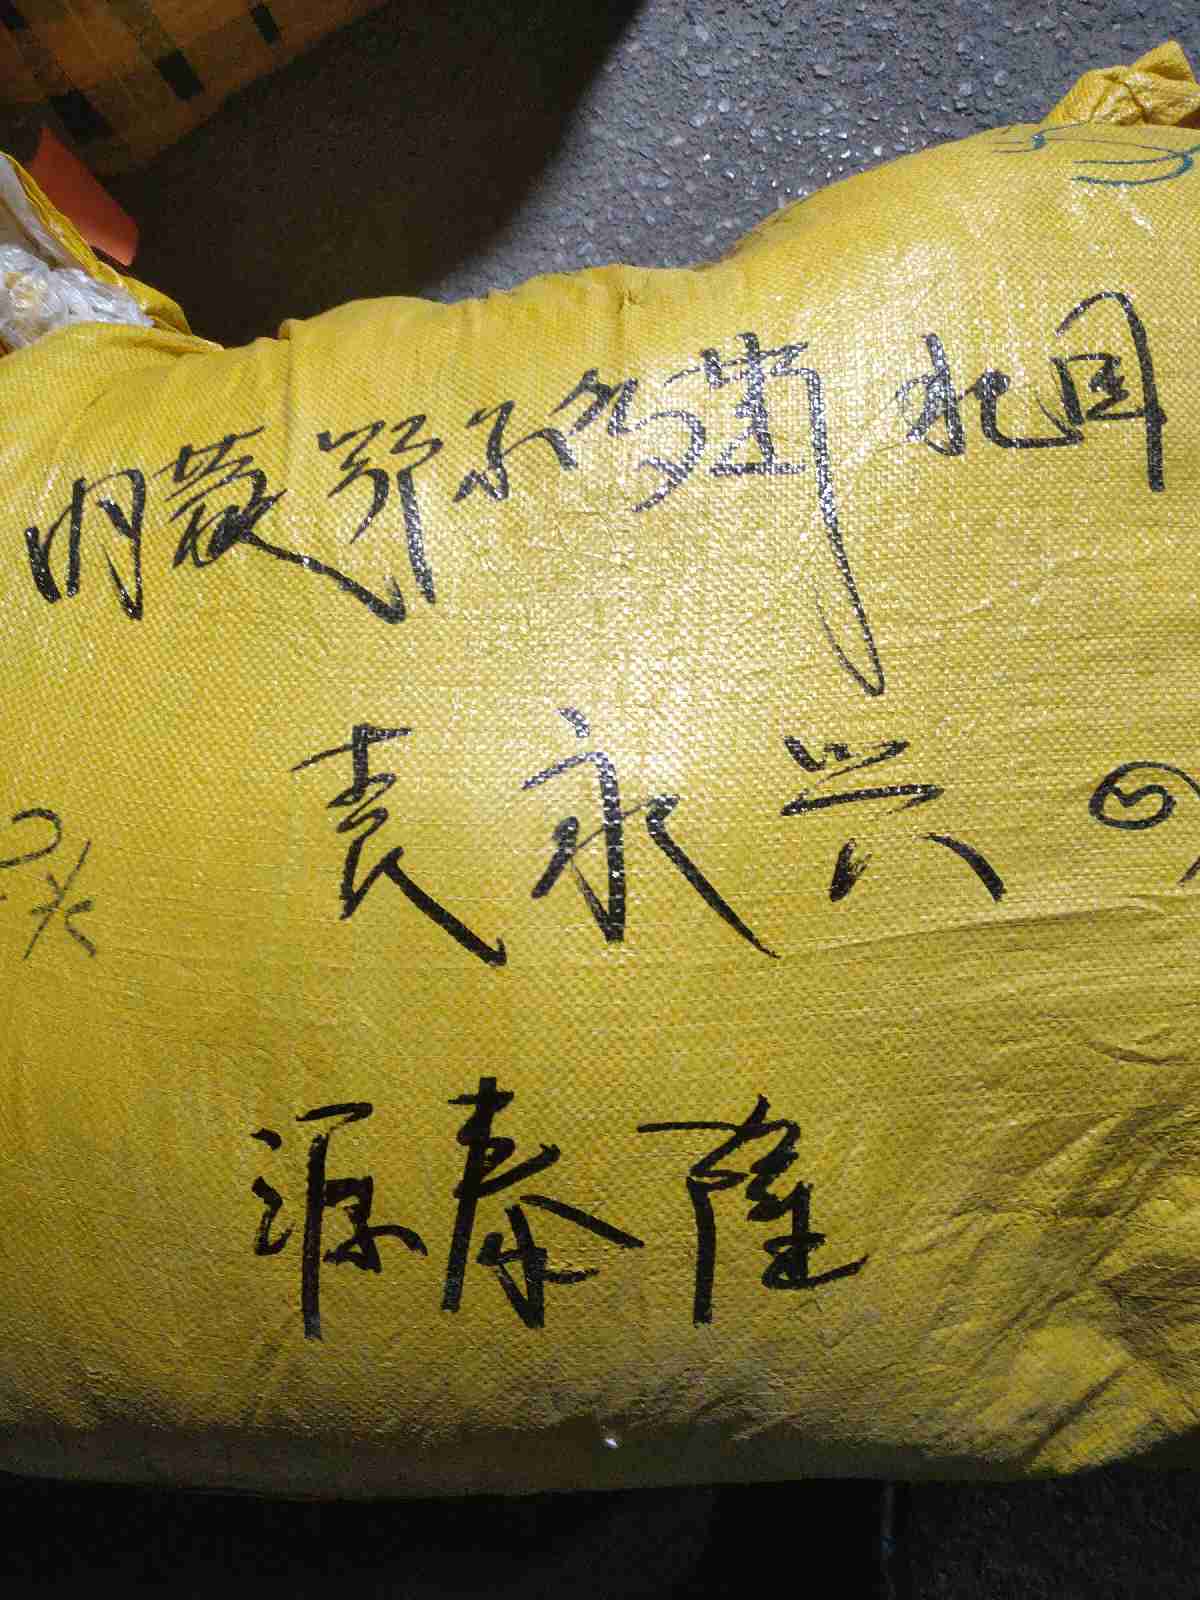 内蒙鄂尔多斯 北国
袁永兴 ⑤
源泰隆